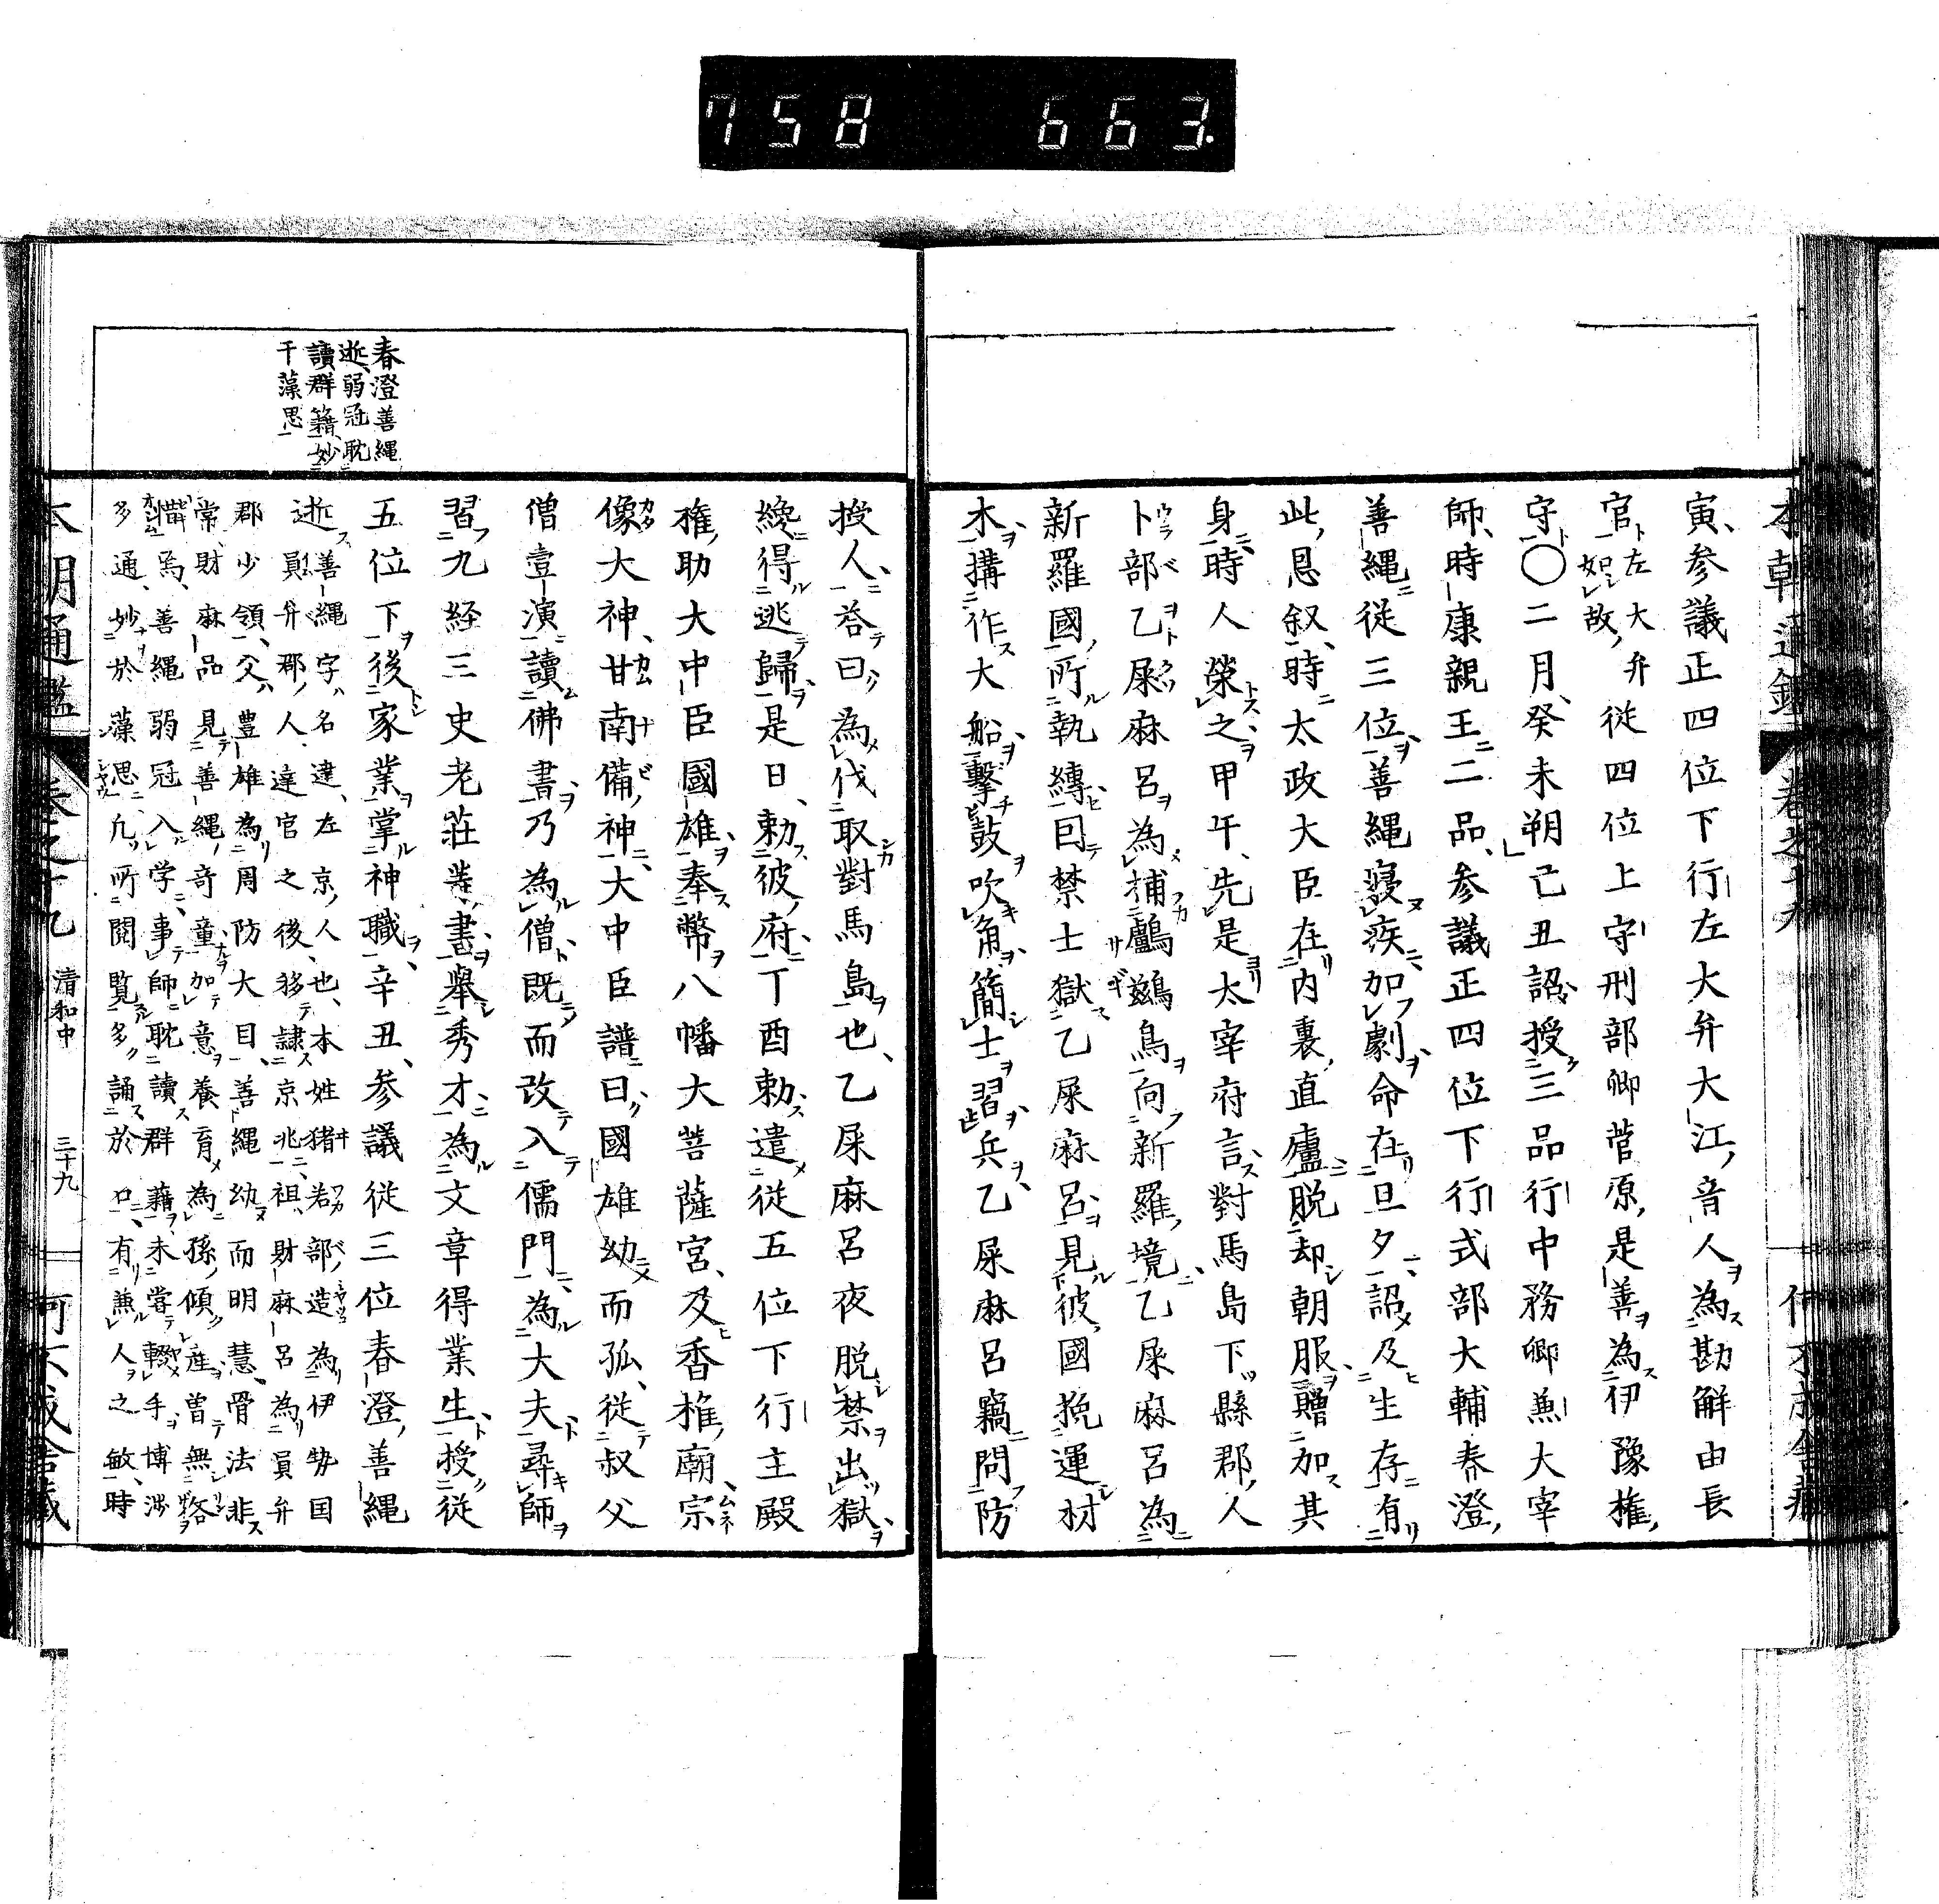 758 663.
寅、参議正四位下行左大弁大江音人為勘解由長
官左大弁如故、従四位上守刑部卿菅原是善為伊豫権
守〇二月、癸未朔己丑詔授三品行中務卿兼大宰
師、時康親王二品、参議正四位下行式部大輔春澄
善縄従三位善縄寝疾加劇命在旦夕、詔及生存有
此恩叙、時太政大臣在内裏直廬脱却朝服贈加其
身、時人栄之、甲午、先是太宰府言、對馬島下縣郡人
卜部乙屎麻呂為捕鸕鷀鳥向新羅境、乙屎麻呂為
新羅國所執縛囙禁士獄乙屎麻呂見彼國挽運材
木、搆作大船、撃鼓吹角簡士習兵、乙屎麻呂竊問防
授人、答曰、為伐取對馬島也、乙屎麻呂夜脱禁出獄、
纔得逃歸、是日、勅彼府、丁酉勅遣従五位下行主殿
権助大中臣國雄、奉幣八幡大菩薩宮、及香椎廟、宗
像大神、甘南備神、大中臣譜曰、國雄幼而孤、従叔父
僧壹演、讀佛書、乃為僧、既而改入儒門、為大夫、尋師
習九経三史老荘等書、舉秀才、為文章得業生、授従
五位下、後家業掌神職、辛丑、参議従三位春澄善縄
逝善縄字名達、左京人也、本姓猪名部造為伊勢国
員弁郡人、達官之後、移隷京兆、祖、財麻呂為員弁
郡少領、父豊雄為周防大目、善縄幼而明慧、骨法非
常、財麻品見善縄奇童、加意養育、為孫傾産、曽無吝
惜焉、善縄弱冠入学、事師耽讀群藉、未嘗輟手、博渉
多通、妙於藻思、凡所閲覧多誦於口、有兼人之敏、時
春澄善縄
逝、弱冠耽
讀群籍妙
于藻思
清和中
三十九